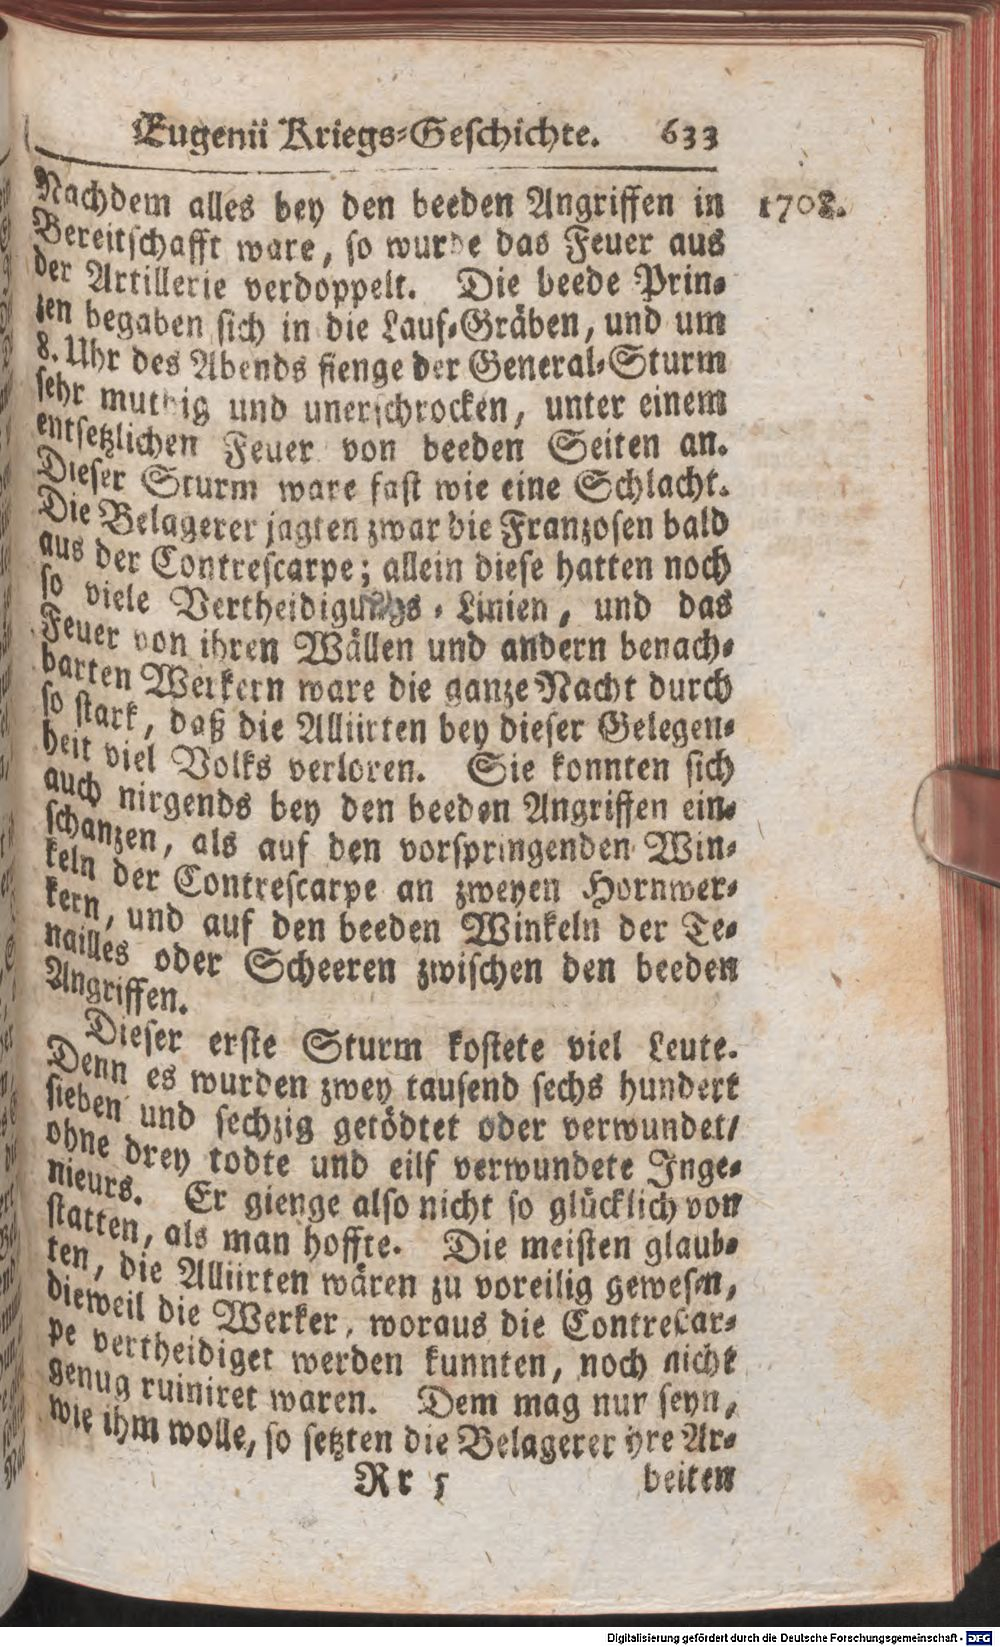 Eugenii Kriegs-Geschichte. 633
Nachdem alles bey den beeden Angriffen in 1708.
Bereitschafft ware, so wurde das Feuer aus
der Artillerie verdoppelt. Die beede Prin-
zen begaben sich in die Lauf-Gräben, und um
8. Uhr des Abends fienge der General-Sturm
sehr muthig und unerschrocken, unter einem
entsetzlichen Feuer von beeden Seiten an.
Dieser Sturm ware fast wie eine Schlacht.
Die Belagerer jagten zwar die Franzosen bald
aus der Contrescarpe; allein diese hatten noch
so viele Vertheidigungs-Linien, und das
Feuer von ihren Wällen und andern benach-
barten Werkern ware die ganze Nacht durch
so stark, daß die Alliirten bey dieser Gelegen-
heit viel Volks verloren. Sie konnten sich
auch nirgends bey den beeden Angriffen ein-
schanzen, als auf den vorspringenden Win-
keln der Contrescarpe an zweyen Hornwer-
kern, und auf den beeden Winkeln der Te-
nailles oder Scheeren zwischen den beeden
Angriffen.
Dieser erste Sturm kostete viel Leute.
Denn es wurden zwey tausend sechs hundert
sieben und sechzig getödtet oder verwundet/
ohne drey todte und eilf verwundete Inge-
nieurs. Er gienge also nicht so glücklich von
statten, als man hoffte. Die meisten glaub-
ten, die Alliirten wären zu voreilig gewesen,
dieweil die Werker, woraus die Contrescar-
pe vertheidiget werden kunnten, noch nicht
genug ruiniret waren. Dem mag nur seyn,
wie ihm wolle, so setzten die Belagerer yre Ar-
Rr 5 beiten
Digitalisierung gefördert durch die Deutsche Forschungsgemeinschaft - DFG